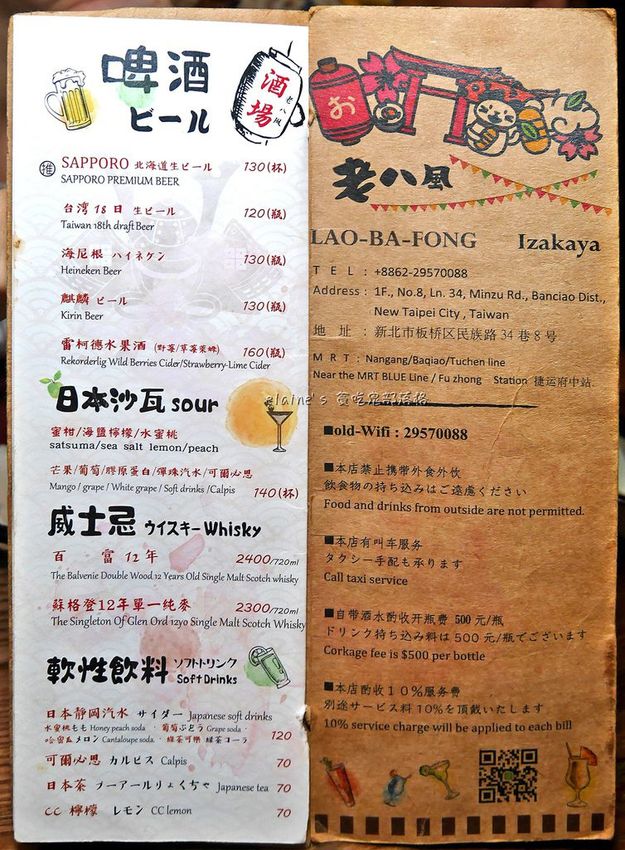 啤酒
ビール
酒場
老八風
推
SAPPORO 北海道生ビール 130(杯)
SAPPORO PREMIUM BEER
台湾 18 日 生ビール 120(瓶)
Taiwan 18th draft Beer
海尼根 ハイネケン 130(瓶)
Heineken Beer
麒麟 ビール 130(瓶)
Kirin Beer
雷柯德水果酒 (野莓/草莓萊姆) 160(瓶)
Rekorderlig Wild Berries Cider/Strawberry-Lime Cider
日本沙瓦 sour
蜜柑/海鹽檸檬/水蜜桃
satsuma/sea salt lemon/peach
芒果/葡萄/膠原蛋白/彈珠汽水/可爾必思
Mango / grape / White grape / Soft drinks /Calpis 140(杯)
威士忌 ウイスキー Whisky
百富 12 年 2400/720ml
The Balvenie Double Wood 12 Years Old Single Malt Scotch whisky
蘇格登12年單一純麥 2300/720ml
The Singleton Of Glen Ord 12yo Single Malt Scotch Whisky
軟性飲料 ソフトドリンク
Soft Drinks
日本静岡汽水 サイダー Japanese soft drinks
水蜜桃もも Honey peach soda ‧ 葡萄ぶどう Grape soda ‧
哈密瓜メロン Cantaloupe soda. ‧ 綠茶可樂 緑茶コーラ 120
可爾必思 カルピス Calpis 70
日本茶 プーアールりょくちゃ Japanese tea 70
CC 檸檬 レモン CC lemon 70
お
老八風
LAO-BA-FONG Izakaya
TEL : +8862-29570088
Address : 1F., No.8, Ln. 34, Minzu Rd., Banciao Dist.,
New Taipei City , Taiwan
地 址 : 新北市板桥区民族路 34 巷 8 号
MRT : Nangang/Baqiao/Tuchen line
Near the MRT BLUE Line / Fu zhong Station 捷运府中站
elaine's 貪吃鬼部落格
■old-Wifi : 29570088
■本店禁止携带外食外饮
飲食物の持ち込みはご遠慮ください
Food and drinks from outside are not permitted.
■本店有叫车服务
タクシー手配も承ります
Call taxi service
■自带酒水酌收开瓶费 500 元/瓶
ドリンク持ち込み料は 500 元/瓶でございます
Corkage fee is $500 per bottle
■本店酌收10%服务费
別途サービス料 10%を頂戴いたします
10% service charge will be applied to each bill